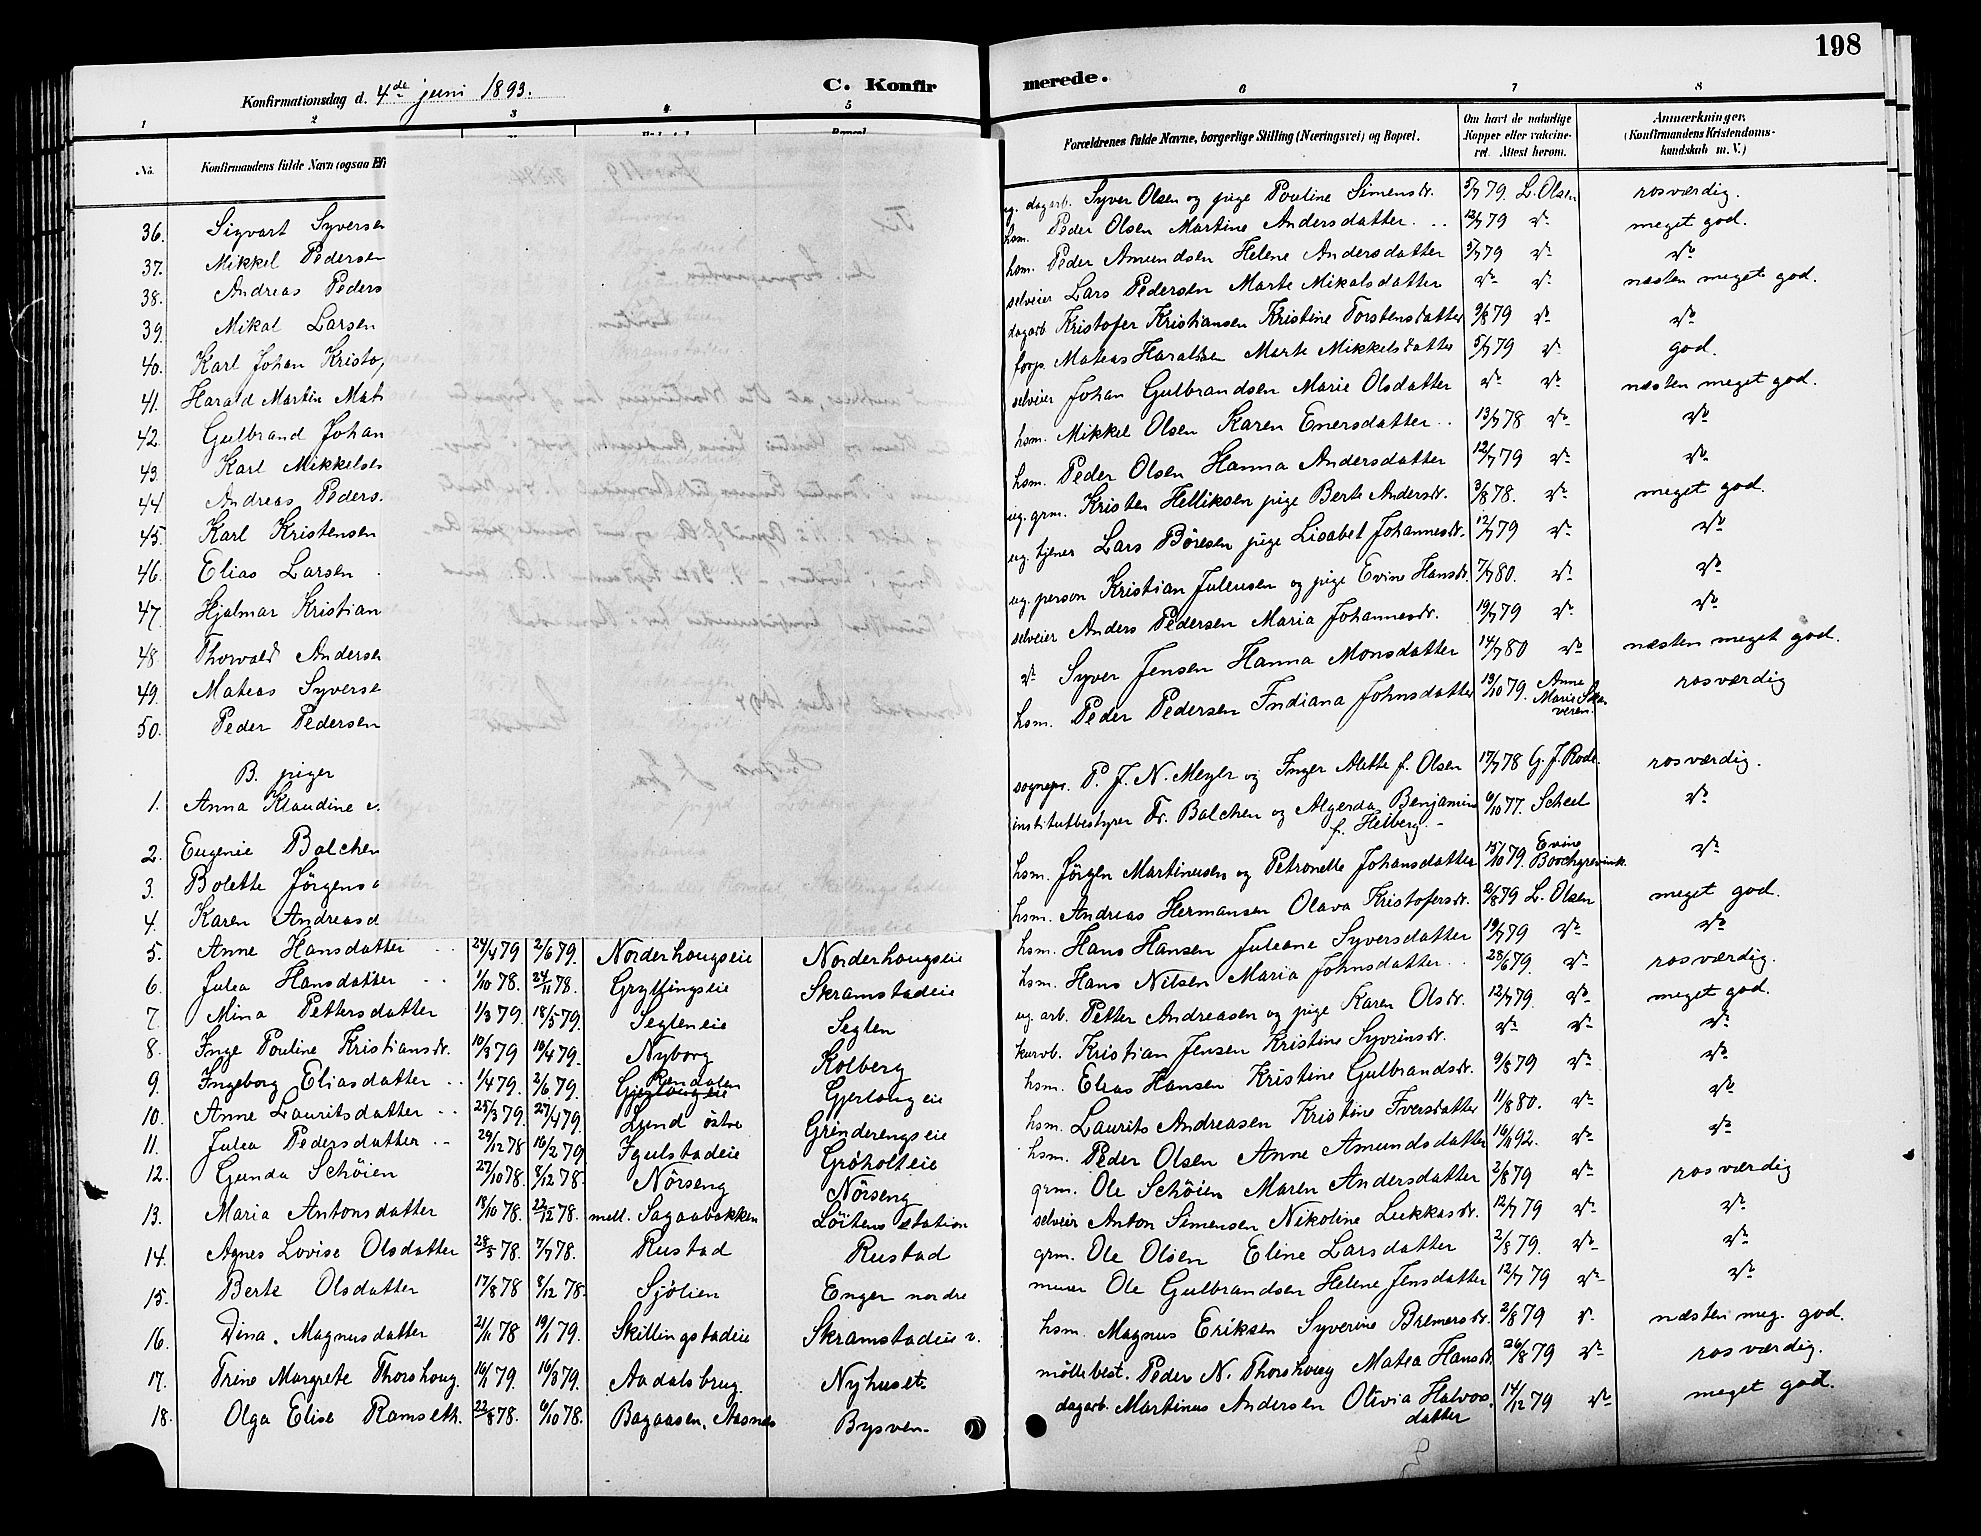 198
Konfirmationsdag d. 4de juni 1893.
C. Konfirmerede.
1 2 3 4 5 6 7 8
No.
Konfirmandens fulde Navn (ogsaa Ef
Forældrenes fulde Navne, borgerlige Stilling (Næringsvei) og Bopæl.
Om havt de naturlige Kopper eller vakcineret. Attest herom.
Anmærkninger. (Konfirmandens Kristendomskundskab m. V.)
36. Sigvart Syversen ug. dagarb. Syver Olsen og pige Pouline Simensdr. 5/7 79. L. Olsen rosværdig.
37. Mikkel Pedersen hsm. Peder Olsen Martine Andersdatter 12/7 79 do meget god.
38. Andreas Peders hsm. Peder Amundsen Helene Andersdatter 5/7 79 do do
39. Mikal Larsen selveier Lars Pedersen Marte Mikalsdatter do do næsten meget god.
40. Karl Johan Kristo dagarb Kristofer Kristiansen Kristine Torstensdatter 9/8 79 do do
41. Harald Martin Mat forp. Mateas Haraldsen Marte Mikkelsdatter 5/7 79 do god.
42. Gulbrand Johan selveier Johan Gulbrandsen Marie Olsdatter do do næsten meget god.
43. Karl Mikkelse hsm. Mikkel Olsen Karen Enersdatter 13/7 78 do do
44. Andreas Peders. hsm. Peder Olsen Hanna Andersdatter 12/7 79 do do
45. Karl Kristensen ug. grm. Kristen Helliksen pige Berte Andersdr. 3/8 78. do meget god.
46. Elias Larsen ug. tjener Lars Børesen pige Lisabet Johannesdr. 12/7 79 do do
47. Hjalmar Kristian ug. person Kristian Juleusen og pige Evine Hansdr. 7/7 80. do do
48. Thorvald Anderse selveier Anders Pedersen Maria Johannesdr. 19/7 79 do do
49. Mateas Syverse do Syver Jensen Hanna Monsdatter 14/7 80 do næsten meget god.
50. Peder Pedersen hsm. Peder Pedersen Indiana Johnsdatter 13/10 79. Anne Marie rosværdig
B. piger
1. Anna Klaudine sognepr. P. J. N. Meyer og Inger Alette f. Olsen 17/7 78 G. J. Rode. rosværdig.
2. Eugenie Balchen institutbestyrer Fr. Balchen og Algerda Benjamine f. Heiberg. 6/10 77. Scheel do
3. Bolette Jørgens hsm. Jørgen Martinusen og Petronelle Johansdatter 15/10 79. Evine Borchgrevink do
4. Karen Andreasd hsm. Andreas Hermansen Olava Kristofersdr. 2/8 79 L. Olsen meget god.
5. Anne Hansdatter 24/4 79 2/6 79. Norderhougseie Norderhougseie hsm. Hans Hansen Juleane Syversdatter 19/7 79 do do
6. Julea Hansdatter 1/10 78. 24/11 78. Gryllingseie Skramstadeie hsm. Hans Nilsen Maria Johnsdatter 28/6 79. do rosværdig.
7. Mina Pettersdatter 1/3 79. 18/5 79. Segleneie Seglen ug. arb. Petter Andreasen og pige Karen Olsdr. 12/7 79. do meget god.
8. Inge Pouline Kristiansdr. 10/3 79 10/4 79. Nyborg Kolberg kurvb. Kristian Jensen Kristine Syverinsdr. do do do
9. Ingeborg Eliasdatter 1/4 79. 2/6 79. Rendalen Gjerlougeie hsm. Elias Hansen Kristine Gulbrandsdr. 9/8 79 do do
10. Anne Lauritsdatter 25/3 79. 27/4 79. Lund østre Grinderengseie hsm. Laurits Andreasen Kristine Iversdatter 11/8 80. do do
11. Julea Pedersdatter 29/12 78 16/2 79 Igulstadeie Grøholteie hsm. Peder Olsen Anne Amundsdatter 16/11 92. do do
12. Gunda Schøien 27/10 78. 8/12 78. Nørseng Nørseng grm. Ole Schøien Maren Andersdatter 2/8 79 do rosværdig
13. Maria Antonsdatter 18/10 78. 22/12 78. mell. Sagaabakken Løitens station selveier Anton Simensen Nikoline Lukkasdr. 12/7 79 do do
14. Agnes Lovise Olsdatter 28/5 78. 7/7 78. Rustad Rustad grm. Ole Olsen Eline Larsdatter 2/8 79. do do
15. Berte Olsdatter 17/8 78 8/12 78. Sjølien Enger nordre murer Ole Gulbrandsen Helene Jensdatter 12/7 79 do do
16. Dina Magnusdatter 21/11 78 19/1 79. Skillingstadeie Skramstadeie v. hsm. Magnus Eriksen Syverine Bremersdr. 2/8 79 do næsten meg. god.
17. Trine Margrete Thorshoug. 16/1 79. 16/3 79. Aadalsbrug Nyhuset møllebest. Peder N. Thorshoug Matea Hansdr. 26/8 79 do rosværdig.
18. Olga Elise Ramseth. 22/8 78. 6/10 78. Bagaasen, Aasnes Bysven. dagarb. Martinus Andersen Olivia Halvorsdatter 14/12 79 do meget god.